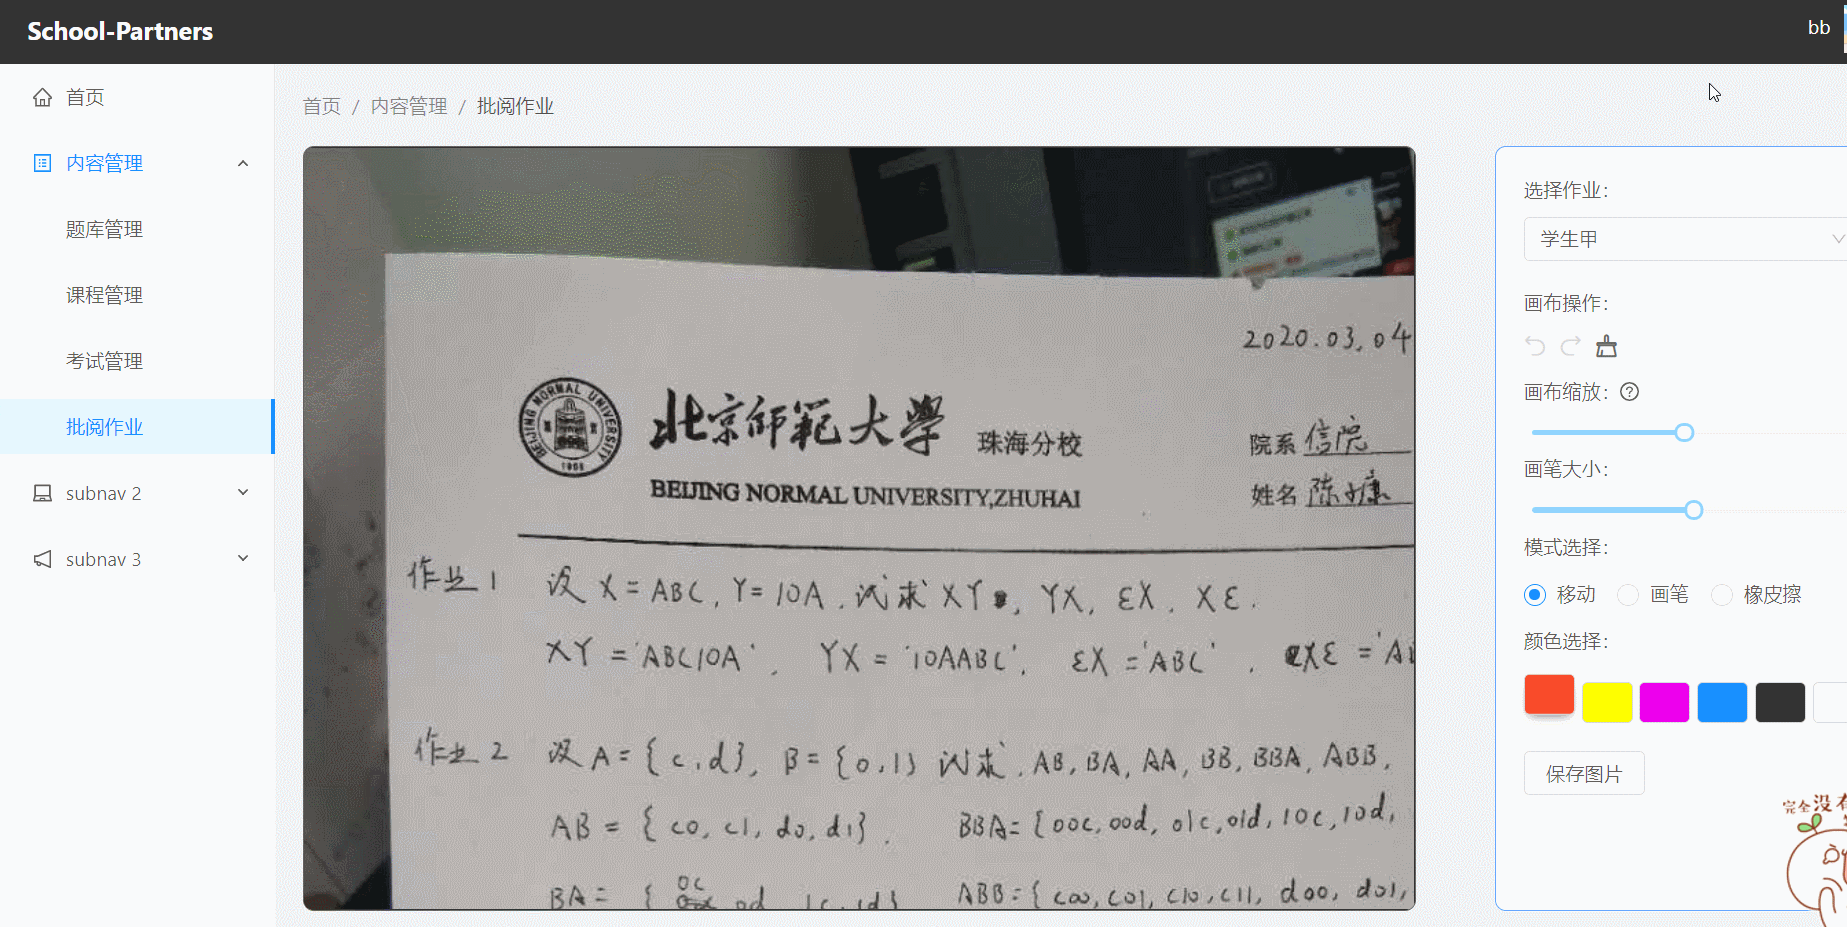 School-Partners
bb
首页
内容管理
题库管理
课程管理
考试管理
批阅作业
subnav 2
subnav 3
首页 / 内容管理 / 批阅作业
2020.03.04
BEIJING NORMAL UNIVERSITY
1902
北京师范大学 珠海分校
BEIJING NORMAL UNIVERSITY,ZHUHAI
院系 信院
姓名 陈
作业1 设 X = ABC, Y = 10A. 试求 XY, YX, εX, Xε.
XY = 'ABC10A', YX = '10AABC', εX = 'ABC', Xε = 'AB
作业2 设 A = {c,d}, B = {0,1} 试求. AB, BA, AA, BB, BBA, ABB,
AB = {c0, c1, d0, d1}. BBA = {00c, 00d, 01c, 01d, 10c, 10d,
BA = { 0c 0d, 1c, 1d} ABB = {c00, c01, c10, c11, d00, d01,
选择作业:
学生甲
画布操作:
画布缩放: ?
画笔大小:
模式选择:
移动 画笔 橡皮擦
颜色选择:
保存图片
完全没有